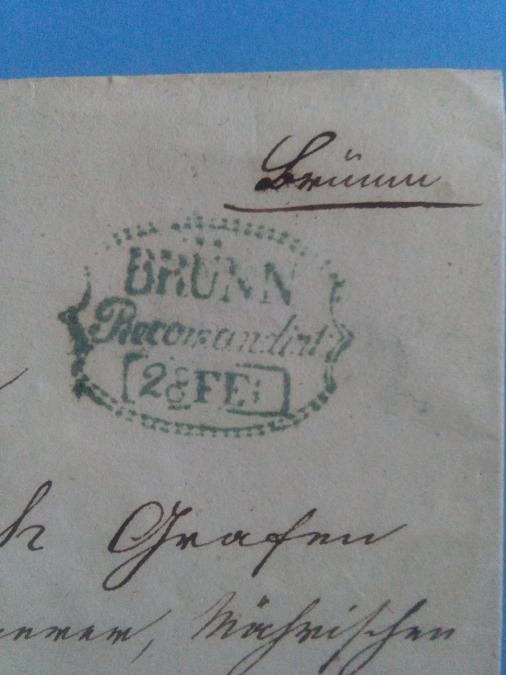 Brünn
BRÜNN
Recomandirt
28 FEB
Grafen
Mährischen